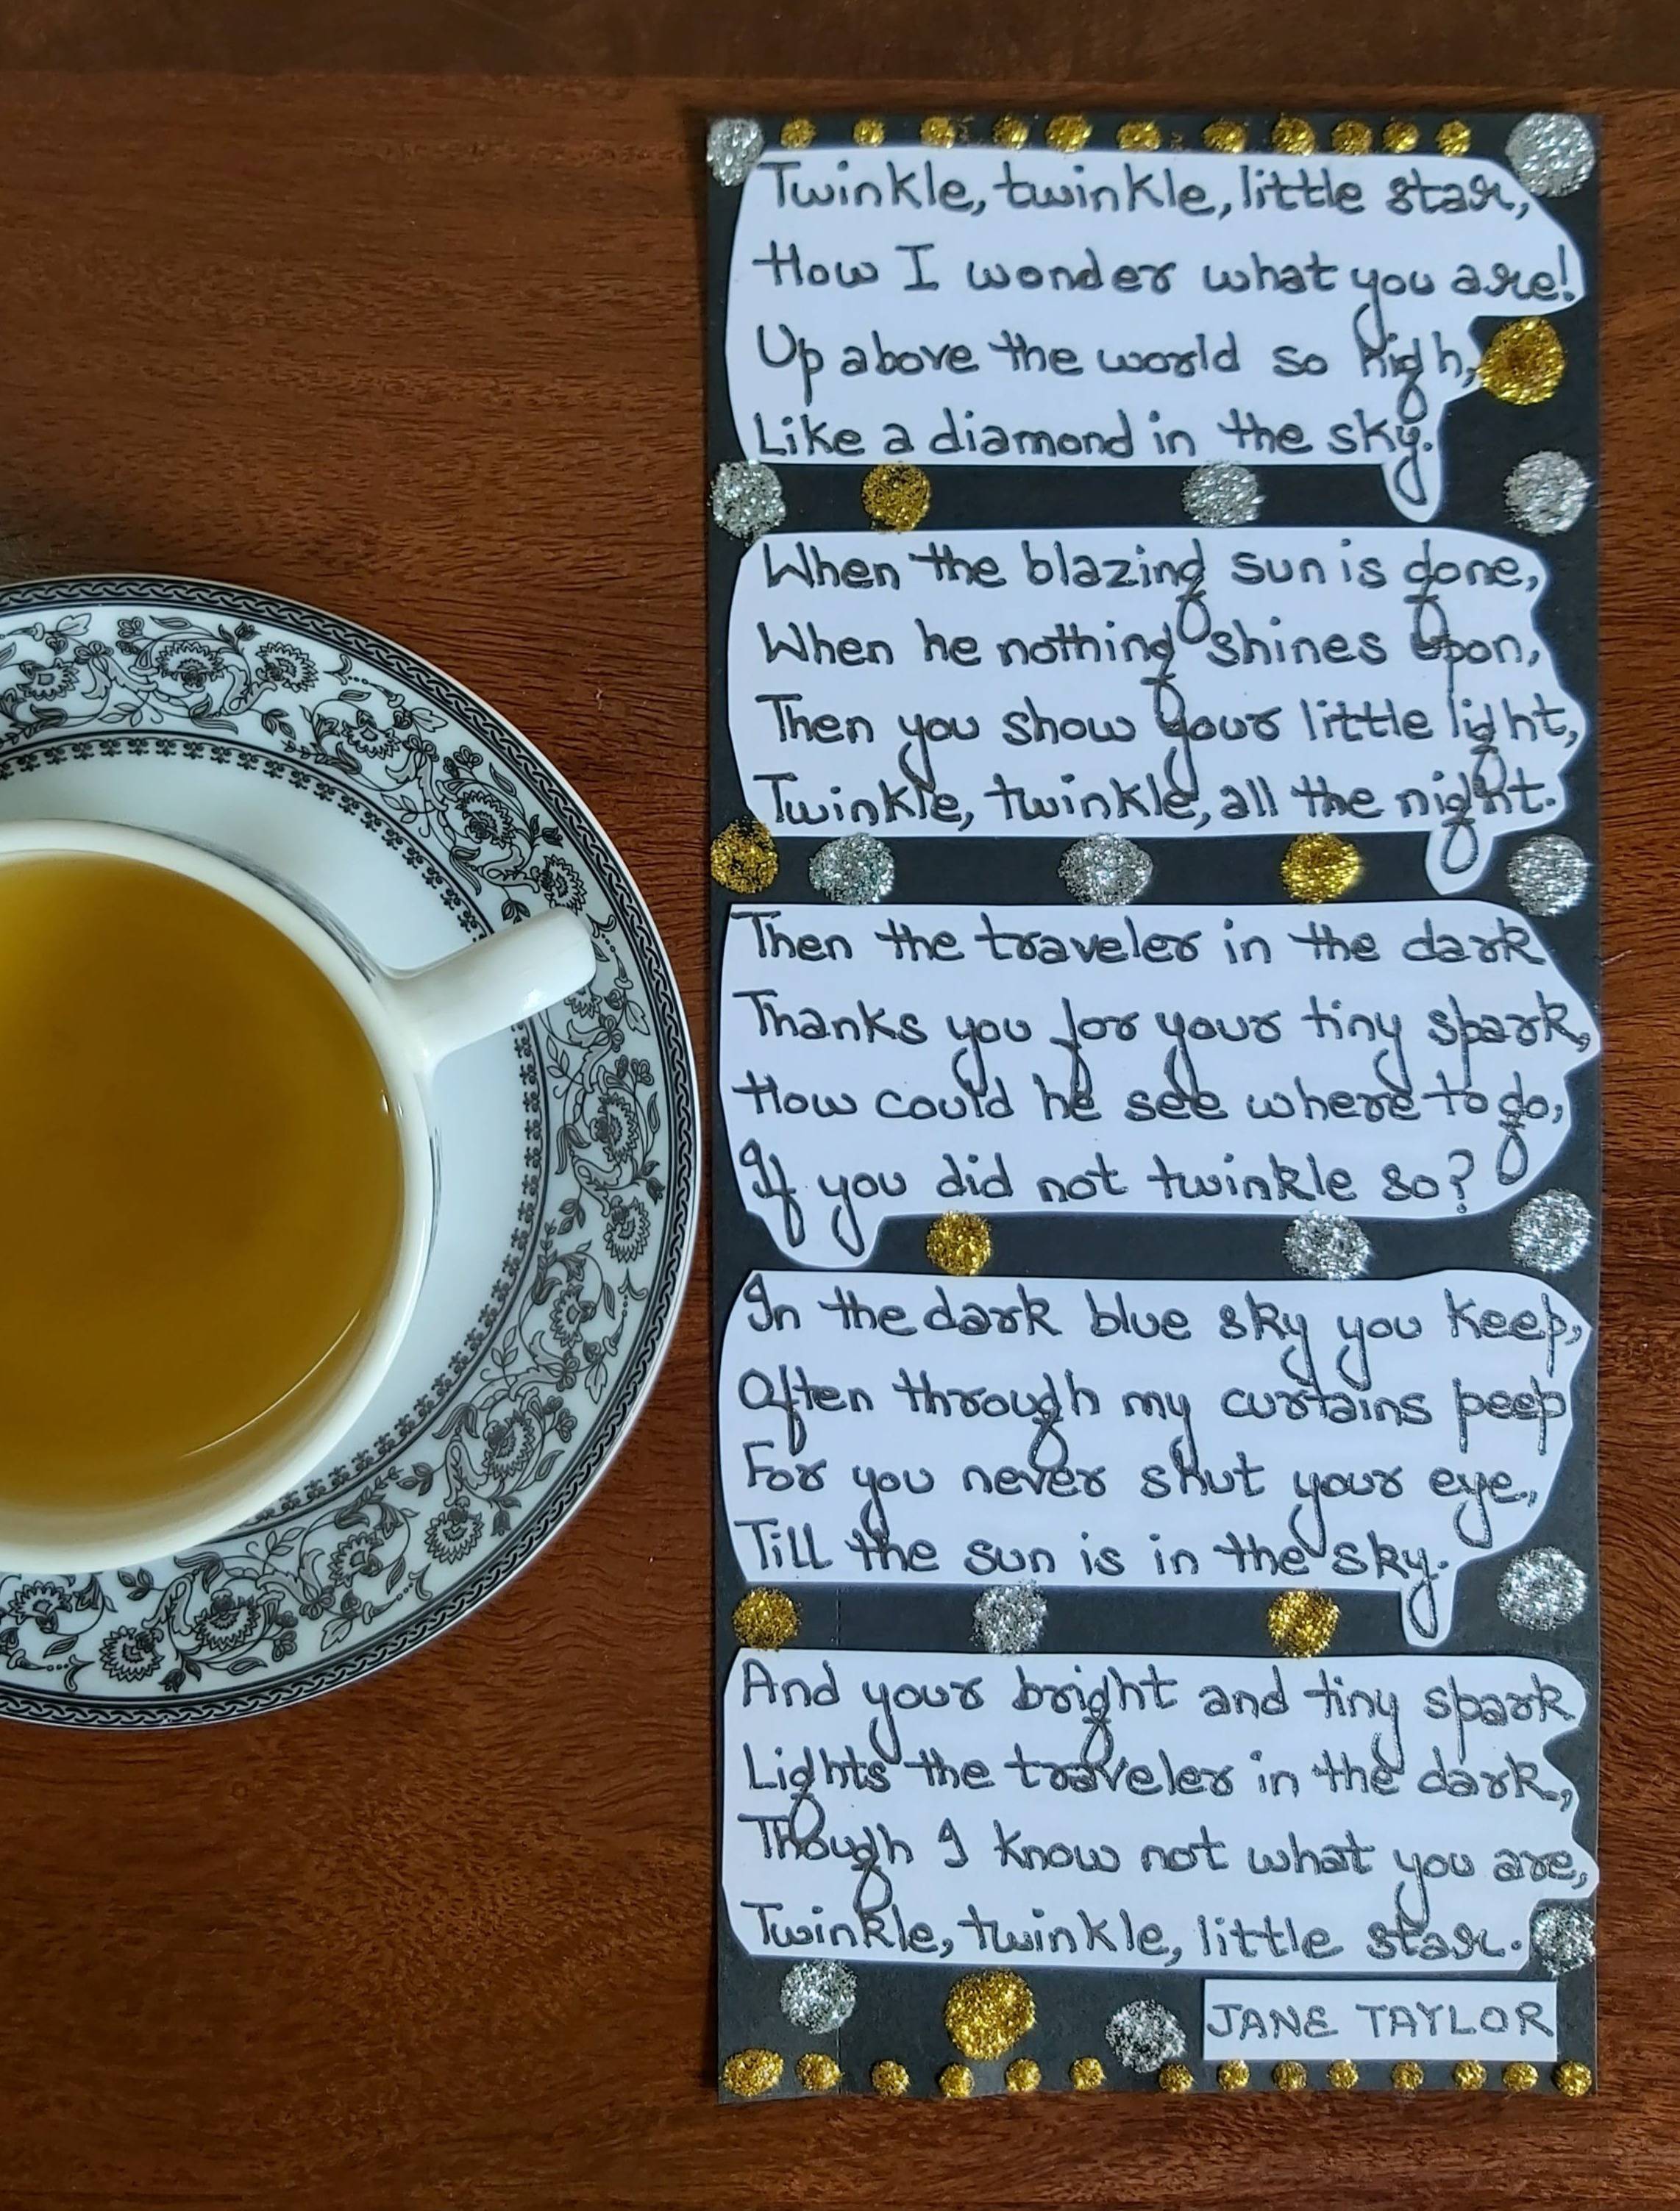 Twinkle, twinkle, little star,
How I wonder what you are!
Up above the world so high,
Like a diamond in the sky.
When the blazing sun is gone,
When he nothing shines upon,
Then you show your little light,
Twinkle, twinkle, all the night.
Then the traveler in the dark
Thanks you for your tiny spark,
How could he see where to go,
If you did not twinkle so?
In the dark blue sky you keep,
Often through my curtains peep
For you never shut your eye,
Till the sun is in the sky.
And your bright and tiny spark
Lights the traveler in the dark,
Though I know not what you are,
Twinkle, twinkle, little star.
JANE TAYLOR